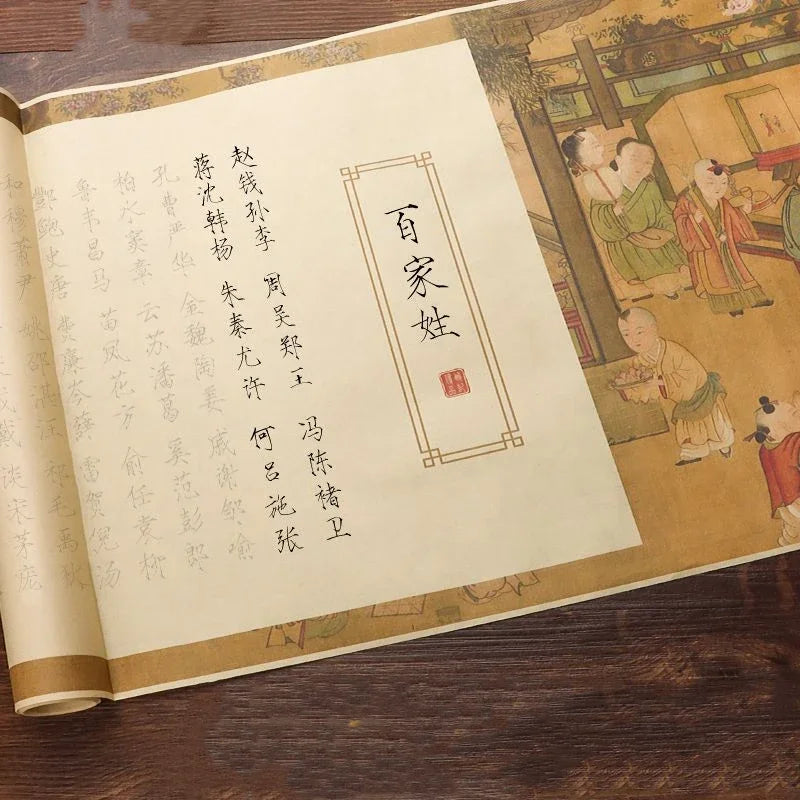 百家姓
赵钱孙李 周吴郑王 冯陈褚卫
蒋沈韩杨 朱秦尤许 何吕施张
孔曹严华 金魏陶姜 戚谢邹喻
柏水窦章 云苏潘葛 奚范彭郎
鲁韦昌马 苗凤花方 俞任袁柳
酆鲍史唐 费廉岑薛 雷贺倪汤
和穆萧尹 姚邵湛汪 祁毛禹狄
成戴 谈宋茅庞